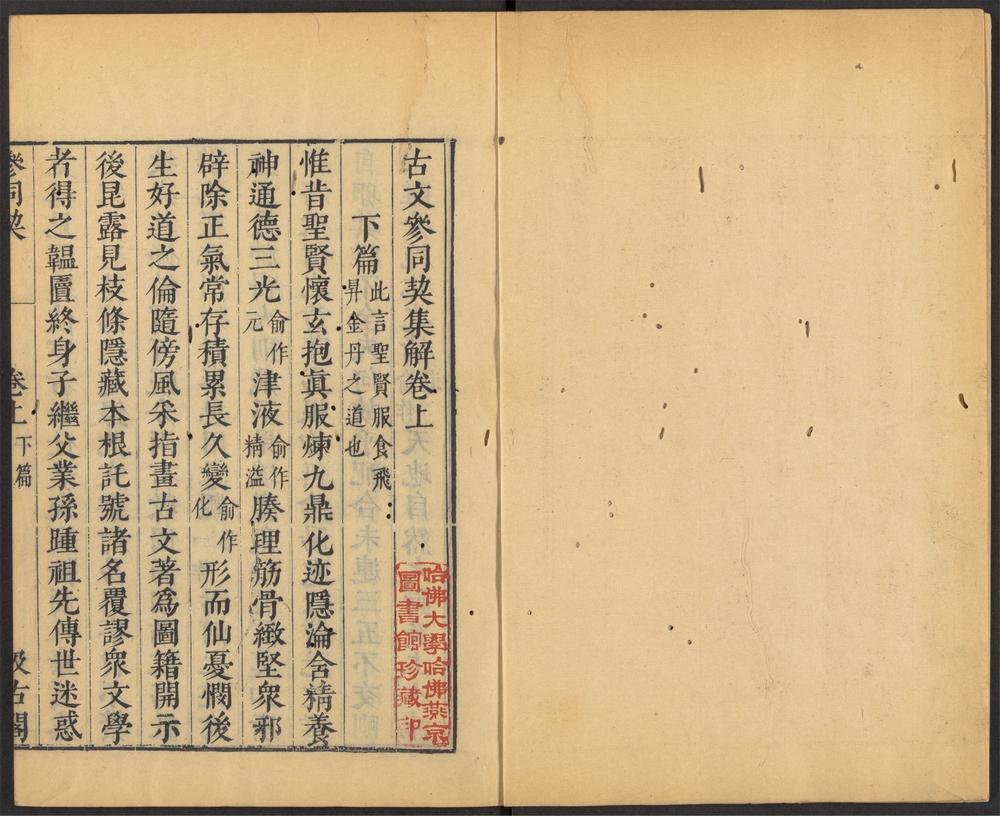 古文參同契集解卷上
下篇 此言聖賢服食飛昇金丹之道也
惟昔聖賢懷玄抱眞服煉九鼎化迹隱淪含精養
神通德三光俞作元津液俞作精溢腠理筋骨緻堅衆邪
辟除正氣常存積累長久變俞作化形而仙憂憫後
生好道之倫隨傍風采指畫古文著爲圖籍開示
後昆露見枝條隱藏本根託號諸名覆謬衆文學
者得之韞匵終身子繼父業孫踵祖先傳世迷惑
參同契 卷上 下篇 汲古閣
哈佛大學哈佛燕京
圖書館珍藏印